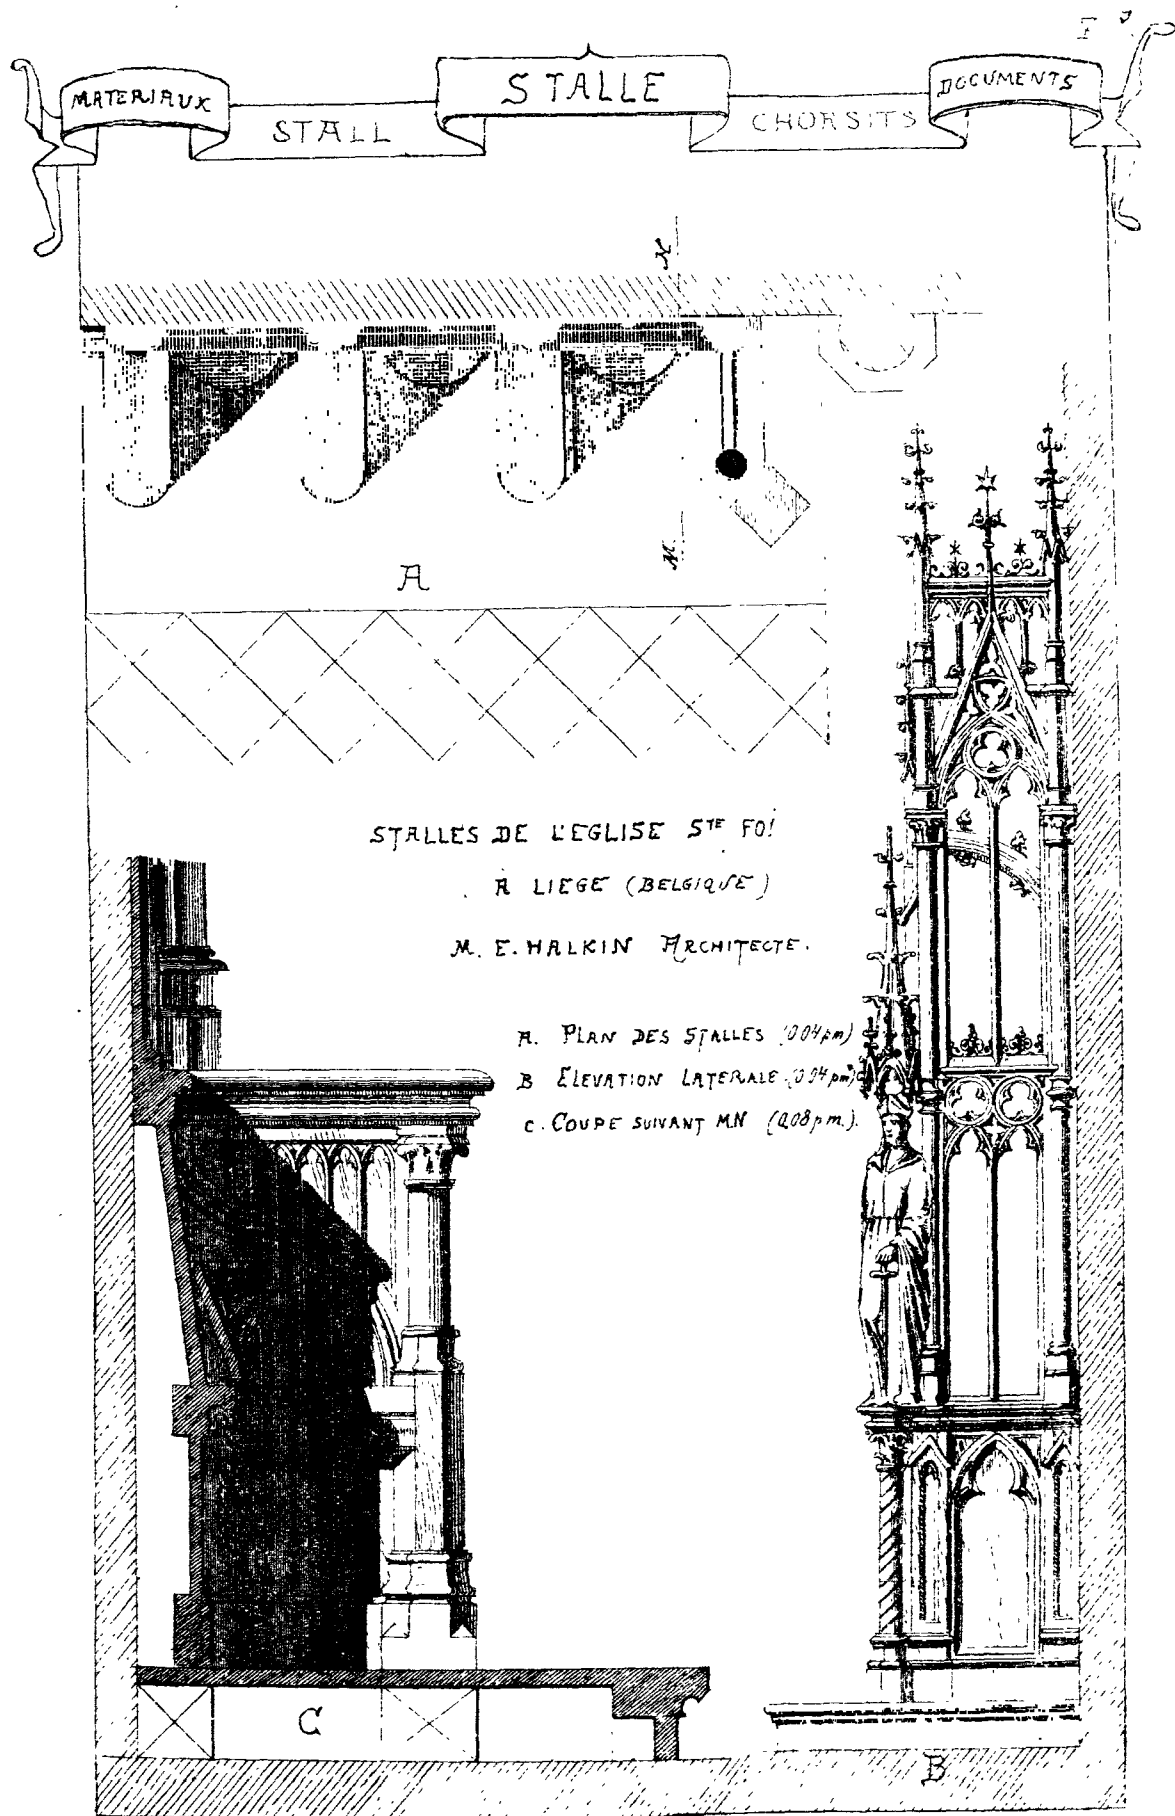 MATERIAUX
STALLE
DOCUMENTS
STALL
CHORSITS
N
M
A
STALLES DE L'EGLISE STE FOI
A LIEGE (BELGIQUE)
M. E. HALKIN ARCHITECTE.
A. PLAN DES STALLES (0.04 pm)
B ELEVATION LATERALE (0.04 pm)
C. COUPE SUIVANT MN (0,08 pm.).
C
B